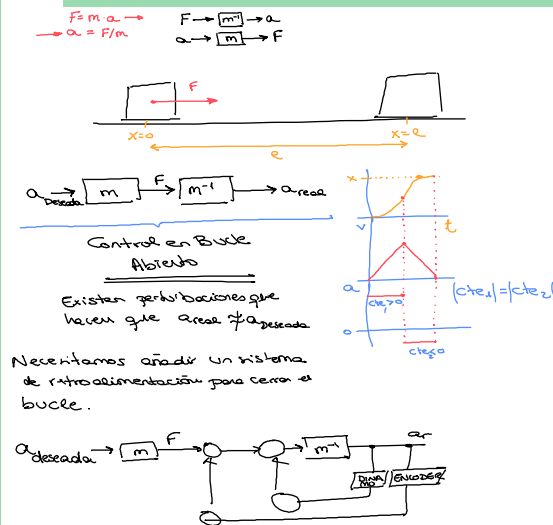 F=m·a → F → m⁻¹ → a
→ a = F/m a → m → F
F
x=0 x=e
e
a Deseada → m F → m⁻¹ → a real
x
v t
a
cte₁>0 |cte₁|=|cte₂|
0
cte₂<0
Control en Bucle
Abierto
Existen perturbaciones que
hacen que a real ≠ a Deseada
Necesitamos añadir un sistema
de retroalimentación para cerrar el
bucle.
a deseada → m F m⁻¹ ar
DINAMO ENCODER